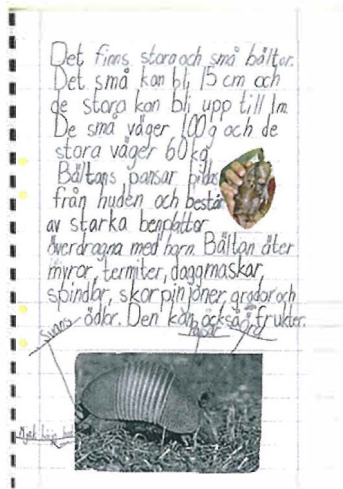 Det finns stora och små bältor.
Det små kan bli 15 cm och
de stora kan bli upp till 1m.
De små väger 100g och de
stora väger 60kg.
Bältans pansar bilda
från huden och bestå
av starka benplattor
överdragna med horn. Bältan äter
myror, termiter, daggmaskar,
spindlar, skorpinjoner, grodor och
ödlor. Den kan också frukter.
Svans
Mjuk